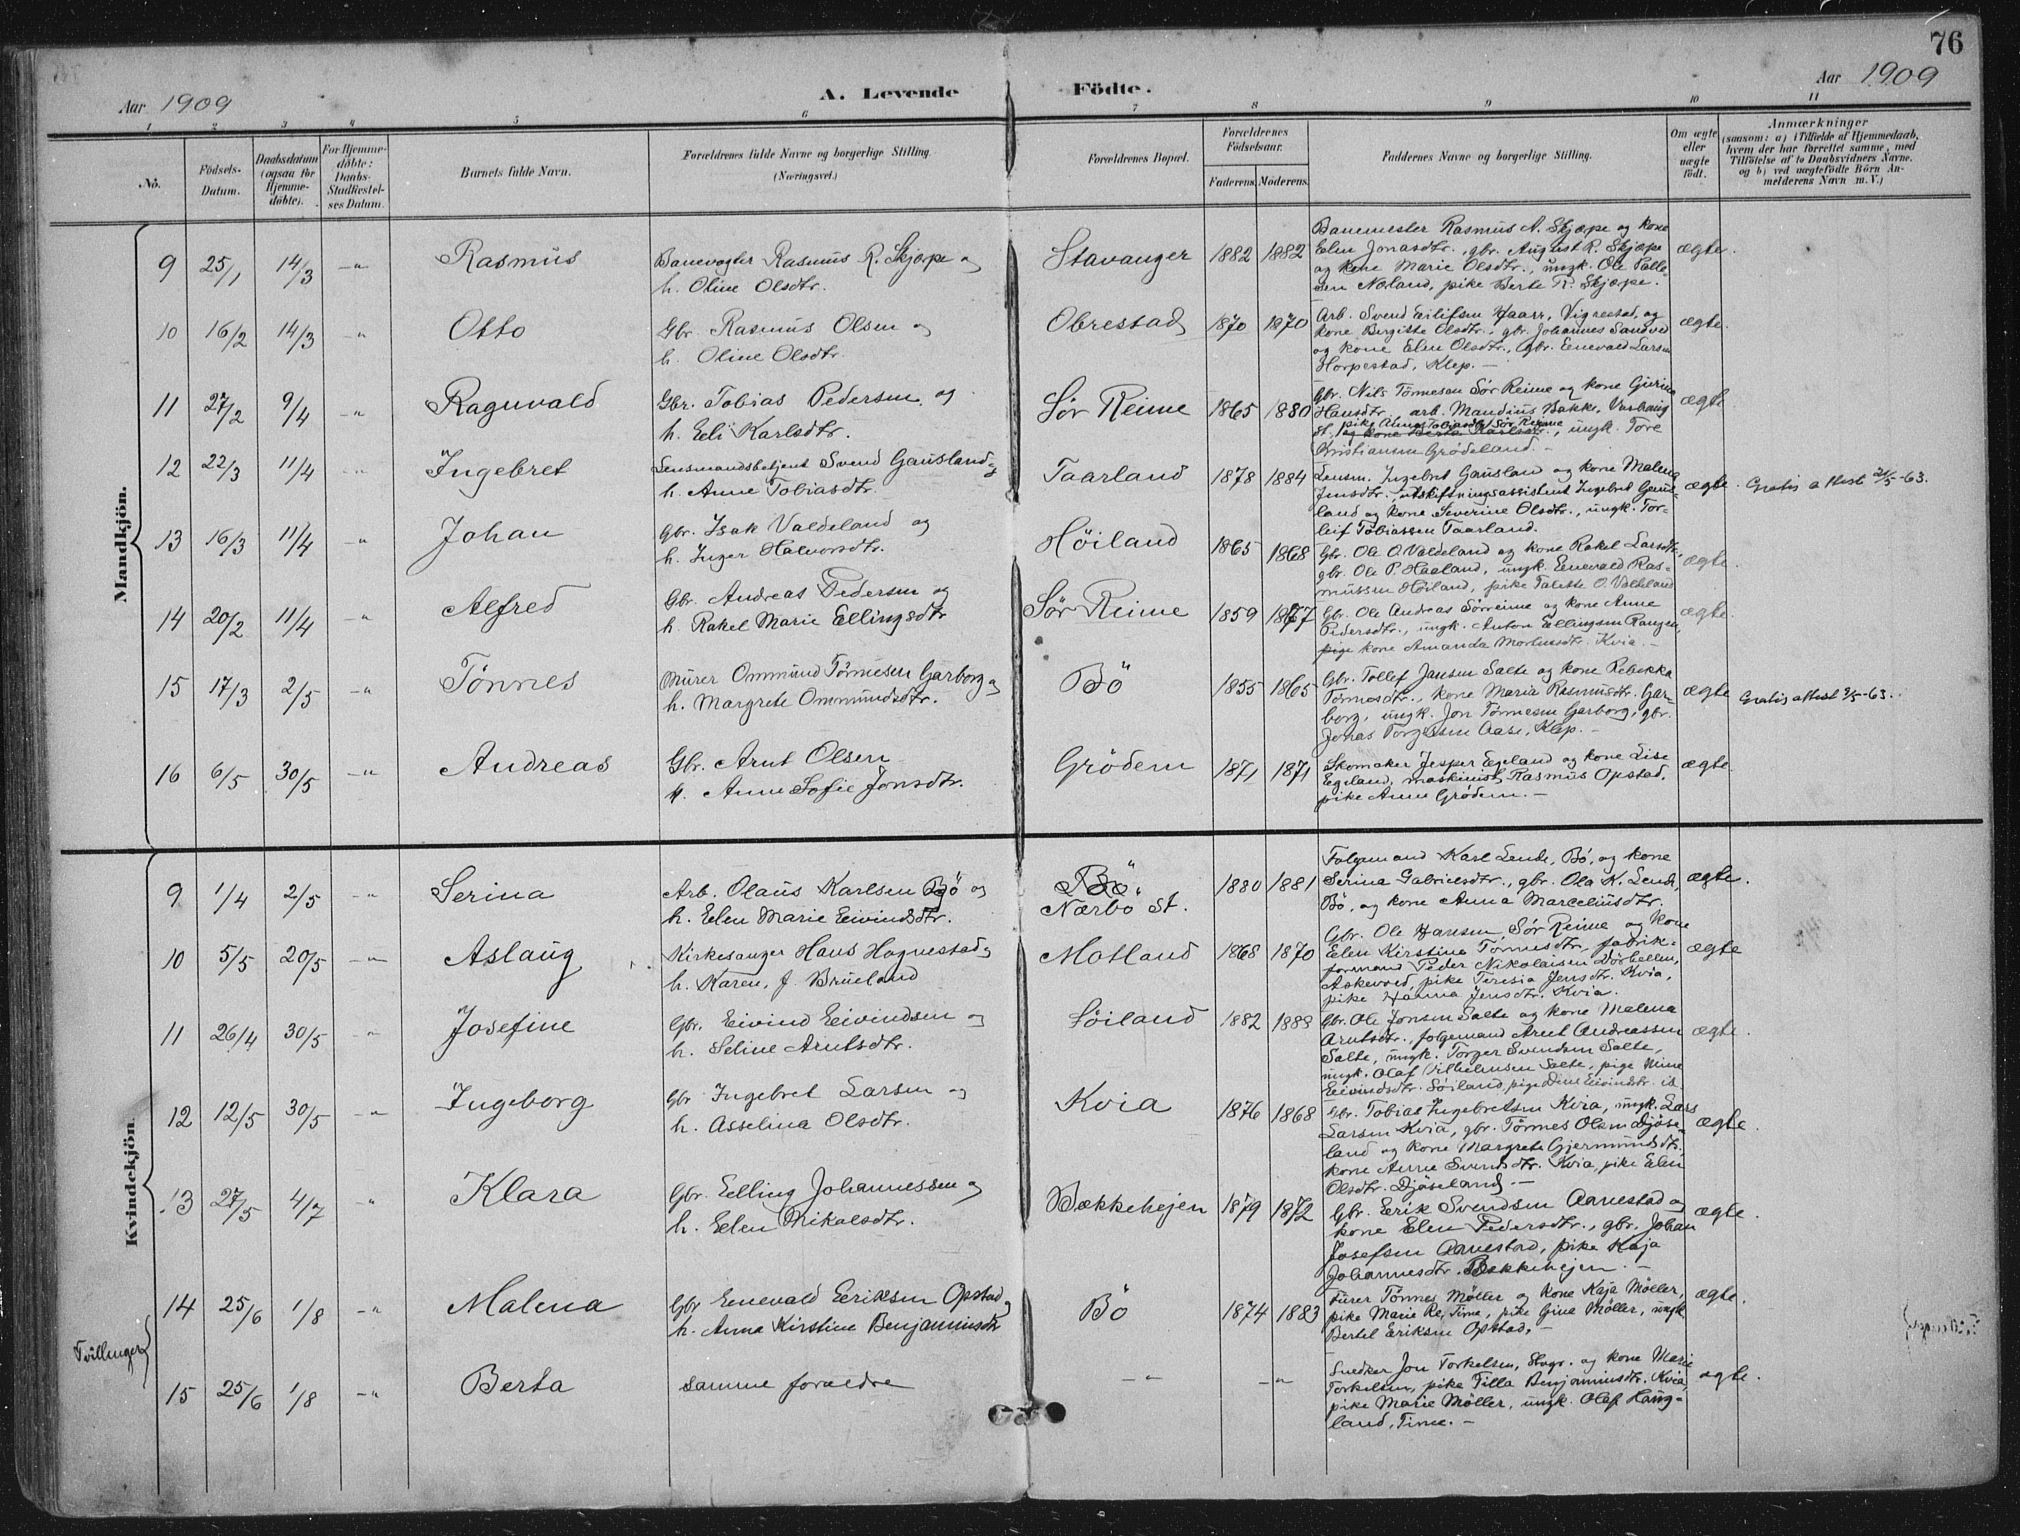 76
Aar 1909
A. Levende Födte.
Aar 1909
1 2 3 4 5 6 7 8 9 10 11
No.
Födsels-Datum.
Daabsdatum (ogsaa for Hjemmedöbte).
For Hjemmedöbte: Daabs-Stadfæstelses Datum.
Barnets fulde Navn.
Forældrenes fulde Navne og borgerlige Stilling.
(Næringsvei.)
Forældrenes Bopæl.
Forældrenes Födselsaar.
Faderens. Moderens.
Faddernes Navne og borgerlige Stilling.
Om ægte eller uægte födt.
Anmærkninger
(saasom: a) i Tilfælde af Hjemmedaab, hvem der har forrettet samme, med Tilföielse af to Daabsvidners Navne. og b) ved uægtefödte Börn Anmelderens Navn m. V.)
Mandkjön.
9 25/1 14/3 -"- Rasmus
Banevogter Rasmus R. Skjæpe og
h. Oline Olsdtr.
Stavanger 1882 1882
Banemester Rasmus A. Skjæpe og kone
Elen Jonasdtr., gbr. August R. Skjæpe
og kone Marie Olsdtr., ungk. Ole Palle-
sen Nærland, pike Berte R. Skjæpe.
ægte.
10 16/2 14/3 -"- Otto
Gbr. Rasmus Olsen og
h. Oline Olsdtr.
Obrestad 1870 1870
Arb. Svend Eilifsen Haarr, Vigrestad, og
kone Birgitte Olsdtr., gbr. Johannes Sandve
og kone Elen Olsdtr., gbr. Enevald Larsen
Horpestad, Klep. -
ægte.
11 27/2 9/4 -"- Ragnvald
Gbr. Tobias Pedersen og
h. Eli Karlsdtr.
Sør Reime 1865 1880
Gbr. Nils Tönnesen Sør Reime og kone Gurina
Hansdtr., arb. Mandius Bakke, Varhaug
st., pike Anna Tobiasdtr Sør Reime
og kone Berta Karlsdtr., ungk. Tore
Kristiansen Grødeland. -
ægte
12 22/3 11/4 -"- Ingebret
Lensmandsbetjent Svend Gausland og
h. Anne Tobiasdtr.
Taarland 1878 1884
Lensm. Ingebret Gausland og kone Malena
Jensdtr., utskiftningsassistent Ingebret Gaus-
land og kone Severine Olsdtr., ungk. Tor-
leif Tobiassen Taarland.
ægte. Gratis attest 21/5-63.
13 16/3 11/4 -"- Johan
Gbr. Isak Valdeland og
h. Inger Halvorsdtr.
Høiland 1865 1868
Gbr. Ole O. Valdeland og kone Rakel Larsdtr,
gbr. Ole P. Haaland, ungk. Enevald Ras-
mussen Høiland, pike Talette O. Valdeland
ægte.
14 20/2 11/4 -"- Alfred
Gbr. Andreas Pedersen og
h. Rakel Marie Ellingsdtr
Sør Reime 1859 1867
Gbr. Ole Andreas Sørreime og kone Anne
Pedersdtr., ungk. Anton Ellingsen
pige kone Amanda Mortensdtr. Kvia. -
ægte.
15 17/3 2/5 -"- Tönnes
Murer Ommund Tönnesen Garborg og
h. Margrete Ommundsdtr.
Bö 1855 1865
Gbr. Tollef Jansen Salte og kone Rebekka
Tönnesdtr., kone Maria Rasmusdtr. Gar-
borg, ungk. Jon Tönnesen Garborg, gbr.
Jonas Torgersen Aase, Klep. -
ægte Gratis attest 3/5-63.
16 6/5 30/5 -"- Andreas
Gbr. Arnt Olsen
h. Anne Sofie Jonsdtr.
Grödem 1871 1871
Skomaker Jesper Egeland og kone Lise
Egeland, maskinist Rasmus Opstad,
pike Anne Grödem. -
ægte
Kvindekjön.
9 1/4 2/5 -"- Serina
Arb. Olaus Karlsen Bö og
h. Elen Marie Eivindsdtr.
Bö.
Nærbö st.
1880 1881
Følgemand Karl Lende, Bö, og kone
Serina Gabrielsdtr., gbr. Ola K. Lende,
Bö, og kone Anna Marceliusdtr.
ægte.
10 5/5 20/5 -"- Aslaug
Kirkesanger Hans Hognestad og
h. Karen, f. Brueland
Motland 1868 1870
Gbr. Ole Hansen Sør Reime og kone
Elen Kirstine Tönnesdtr, fabrik-
formand Peder Nikolaisen
Askevold, pike Teresia Jensdtr. Kvia,
pike Hanna Jensdtr. Kvia.
ægte
11 26/4 30/5 -"- Josefine
Gbr. Eivind Eivindsen og
h. Seline Arntsdtr.
Söiland 1882 1883
Gbr. Ole Jonsen Salte og kone Malena
Arntsdtr., følgemand Arnt Andreassen
Salte, ungk. Torger Svendsen Salte,
ungk. Olaf Vilhelmsen Salte, pige Mine
Eivindsdtr. Söiland, pige Dina Eivindsdtr. ib.
ægte.
12 12/5 30/5 -"- Ingeborg
Gbr Ingebret Larsen og
h. Asselina Olsdtr.
Kvia 1876 1868
Gbr. Tobias Ingebretsen Kvia, ungk. Lars
Larsen Kvia, gbr. Tönnes Olsen Djöse-
land og kone Margrete Gjermundsdtr.
kone Anne Svendsdtr. Kvia, pike Elen
Olsdtr. Djöseland. -
ægte.
13 27/5 4/7 -"- Klara
Gbr. Elling Johannessen og
h. Elen Nikolsdtr.
Bækkehejen 1879 1872
Gbr. Erik Svendsen Aanestad og
kone Elen Pedersdtr., gbr. Johan
Josefsen Aanestad, pike Kaja
Johannesdtr. Bækkehejen. -
ægte.
Tvillinger
14 25/6 1/8 -"- Malena
Gbr Enevald Eriksen Opstad og
h. Anna Kirstine Benjaminsdtr
Bö 1874 1883
Fører Tönnes Möller og kone Kaja Möller,
pike Marie Re, Time, pike Gina Möller, ungk
Bertel Eriksen Opstad. -
ægte.
15 25/6 1/8 -"- Berta
samme forældre
-"- -"-
Snedker Jon Torkelsen, Stvgr. og kone Marie
Torkelsen, pike Tilla Benjaminsdtr. Kvia,
pike Marie Möller, ungk. Olaf Haug-
land, Time. -
ægte.